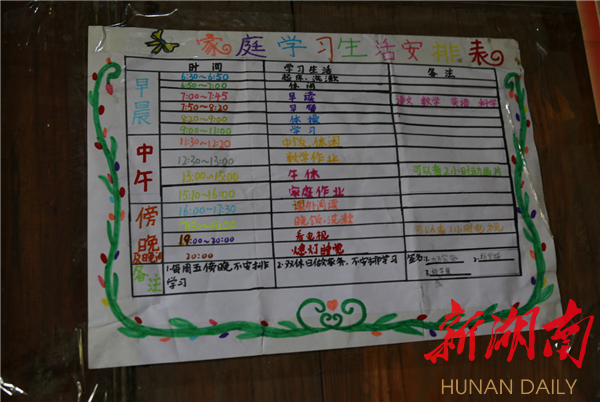 家庭学习生活安排表
时间 学习生活 备注
早晨
6:30~6:50 起床、洗漱
6:50~7:00 休闲
7:00~7:45 早读 语文 数学 英语 科学
7:50~8:20 早餐
8:20~9:00 体操
9:00~11:00 学习
中午
11:30~12:20 中饭、休闲
12:30~13:00 数学作业
13:00~15:00 午休
15:10~16:00 家庭作业
傍晚及晚上
16:00~17:30 课外阅读
晚饭、洗漱
19:00~20:00 看电视
20:00 熄灯睡觉
备注 1.每周五傍晚,不安排学习 2.双休日做家务,不安排学习 签名:1.
2.
3.
新湖南
HUNAN DAILY